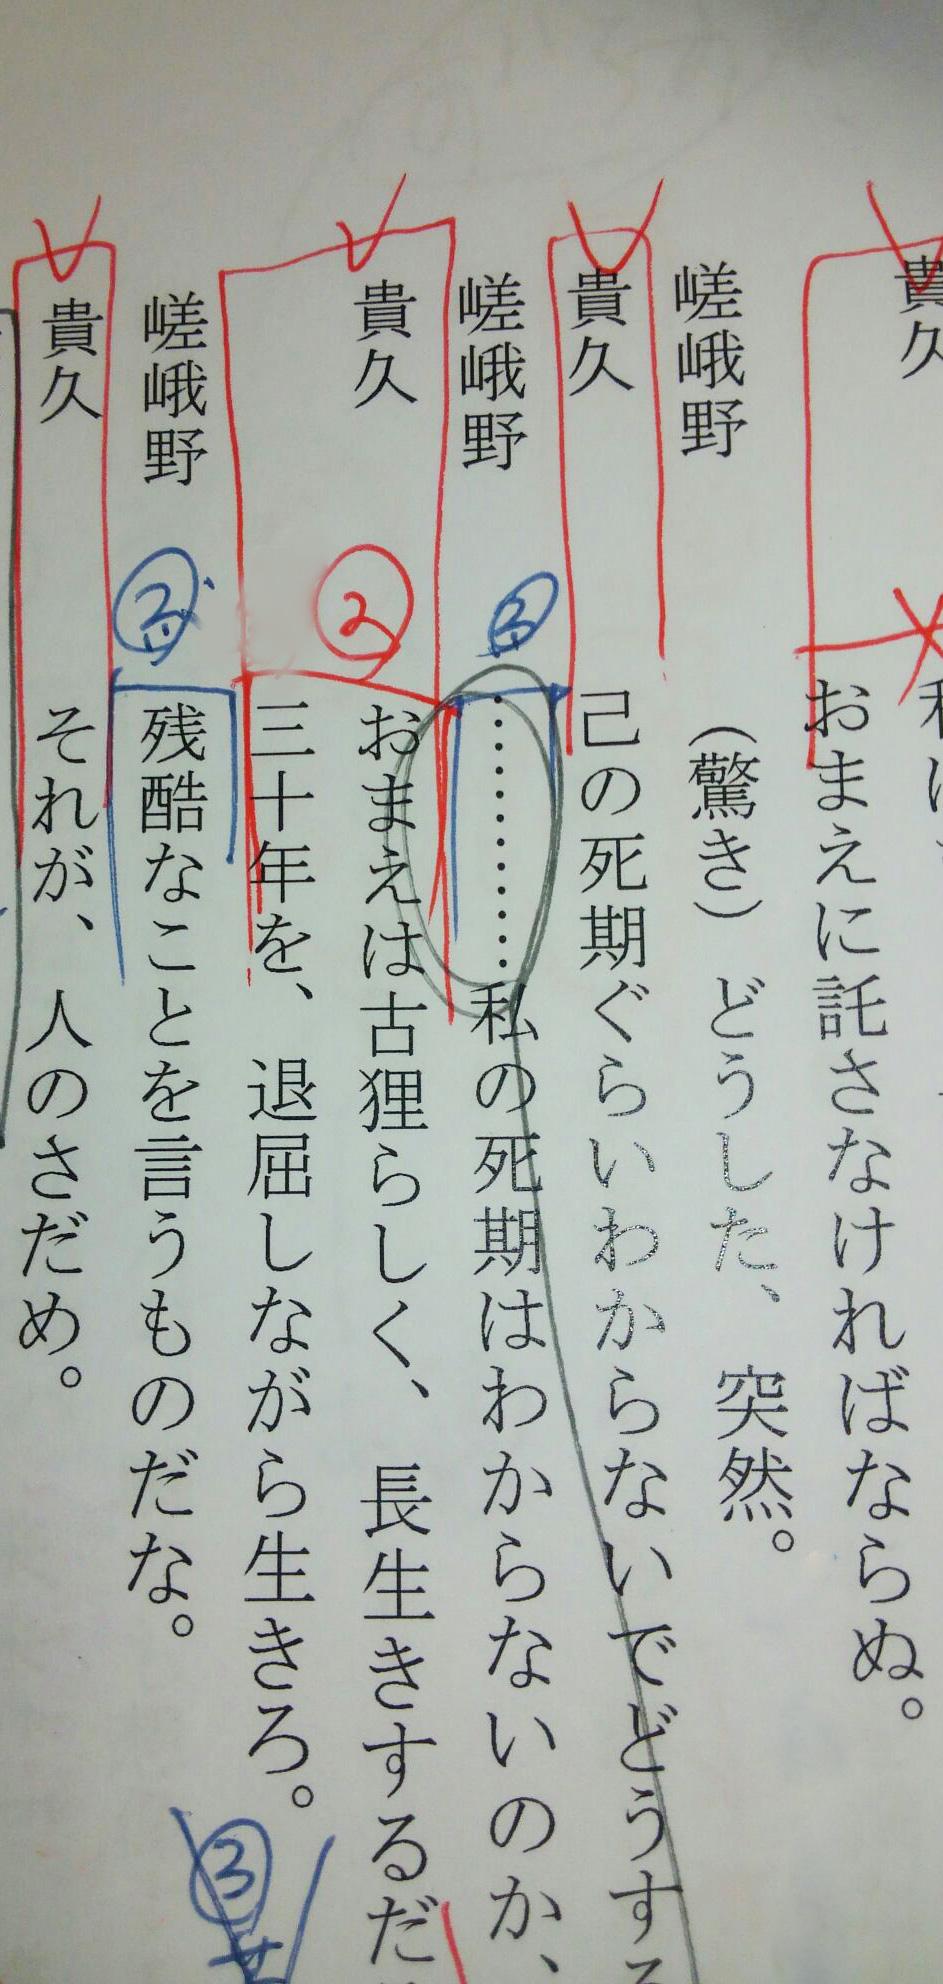 貴久
おまえに託さなければならぬ。
嵯峨野 （驚き） どうした、突然。
貴久 己の死期ぐらいわからないでどうする
嵯峨野 ③ ………私の死期はわからないのか、
貴久 ② おまえは古狸らしく、長生きするだ
三十年を、退屈しながら生きろ。
③
嵯峨野 残酷なことを言うものだな。
貴久 それが、人のさだめ。